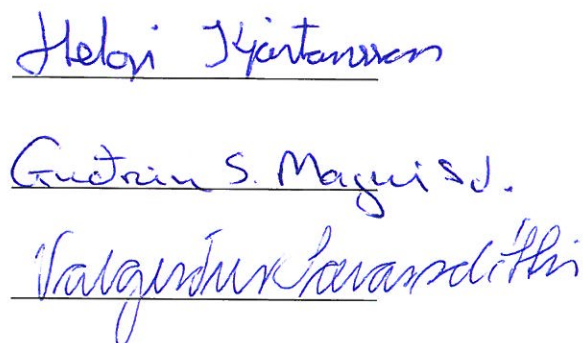 Helgi Kjartansson
Guðrún S. Magnúsd.
Valgerður Sævarsdóttir